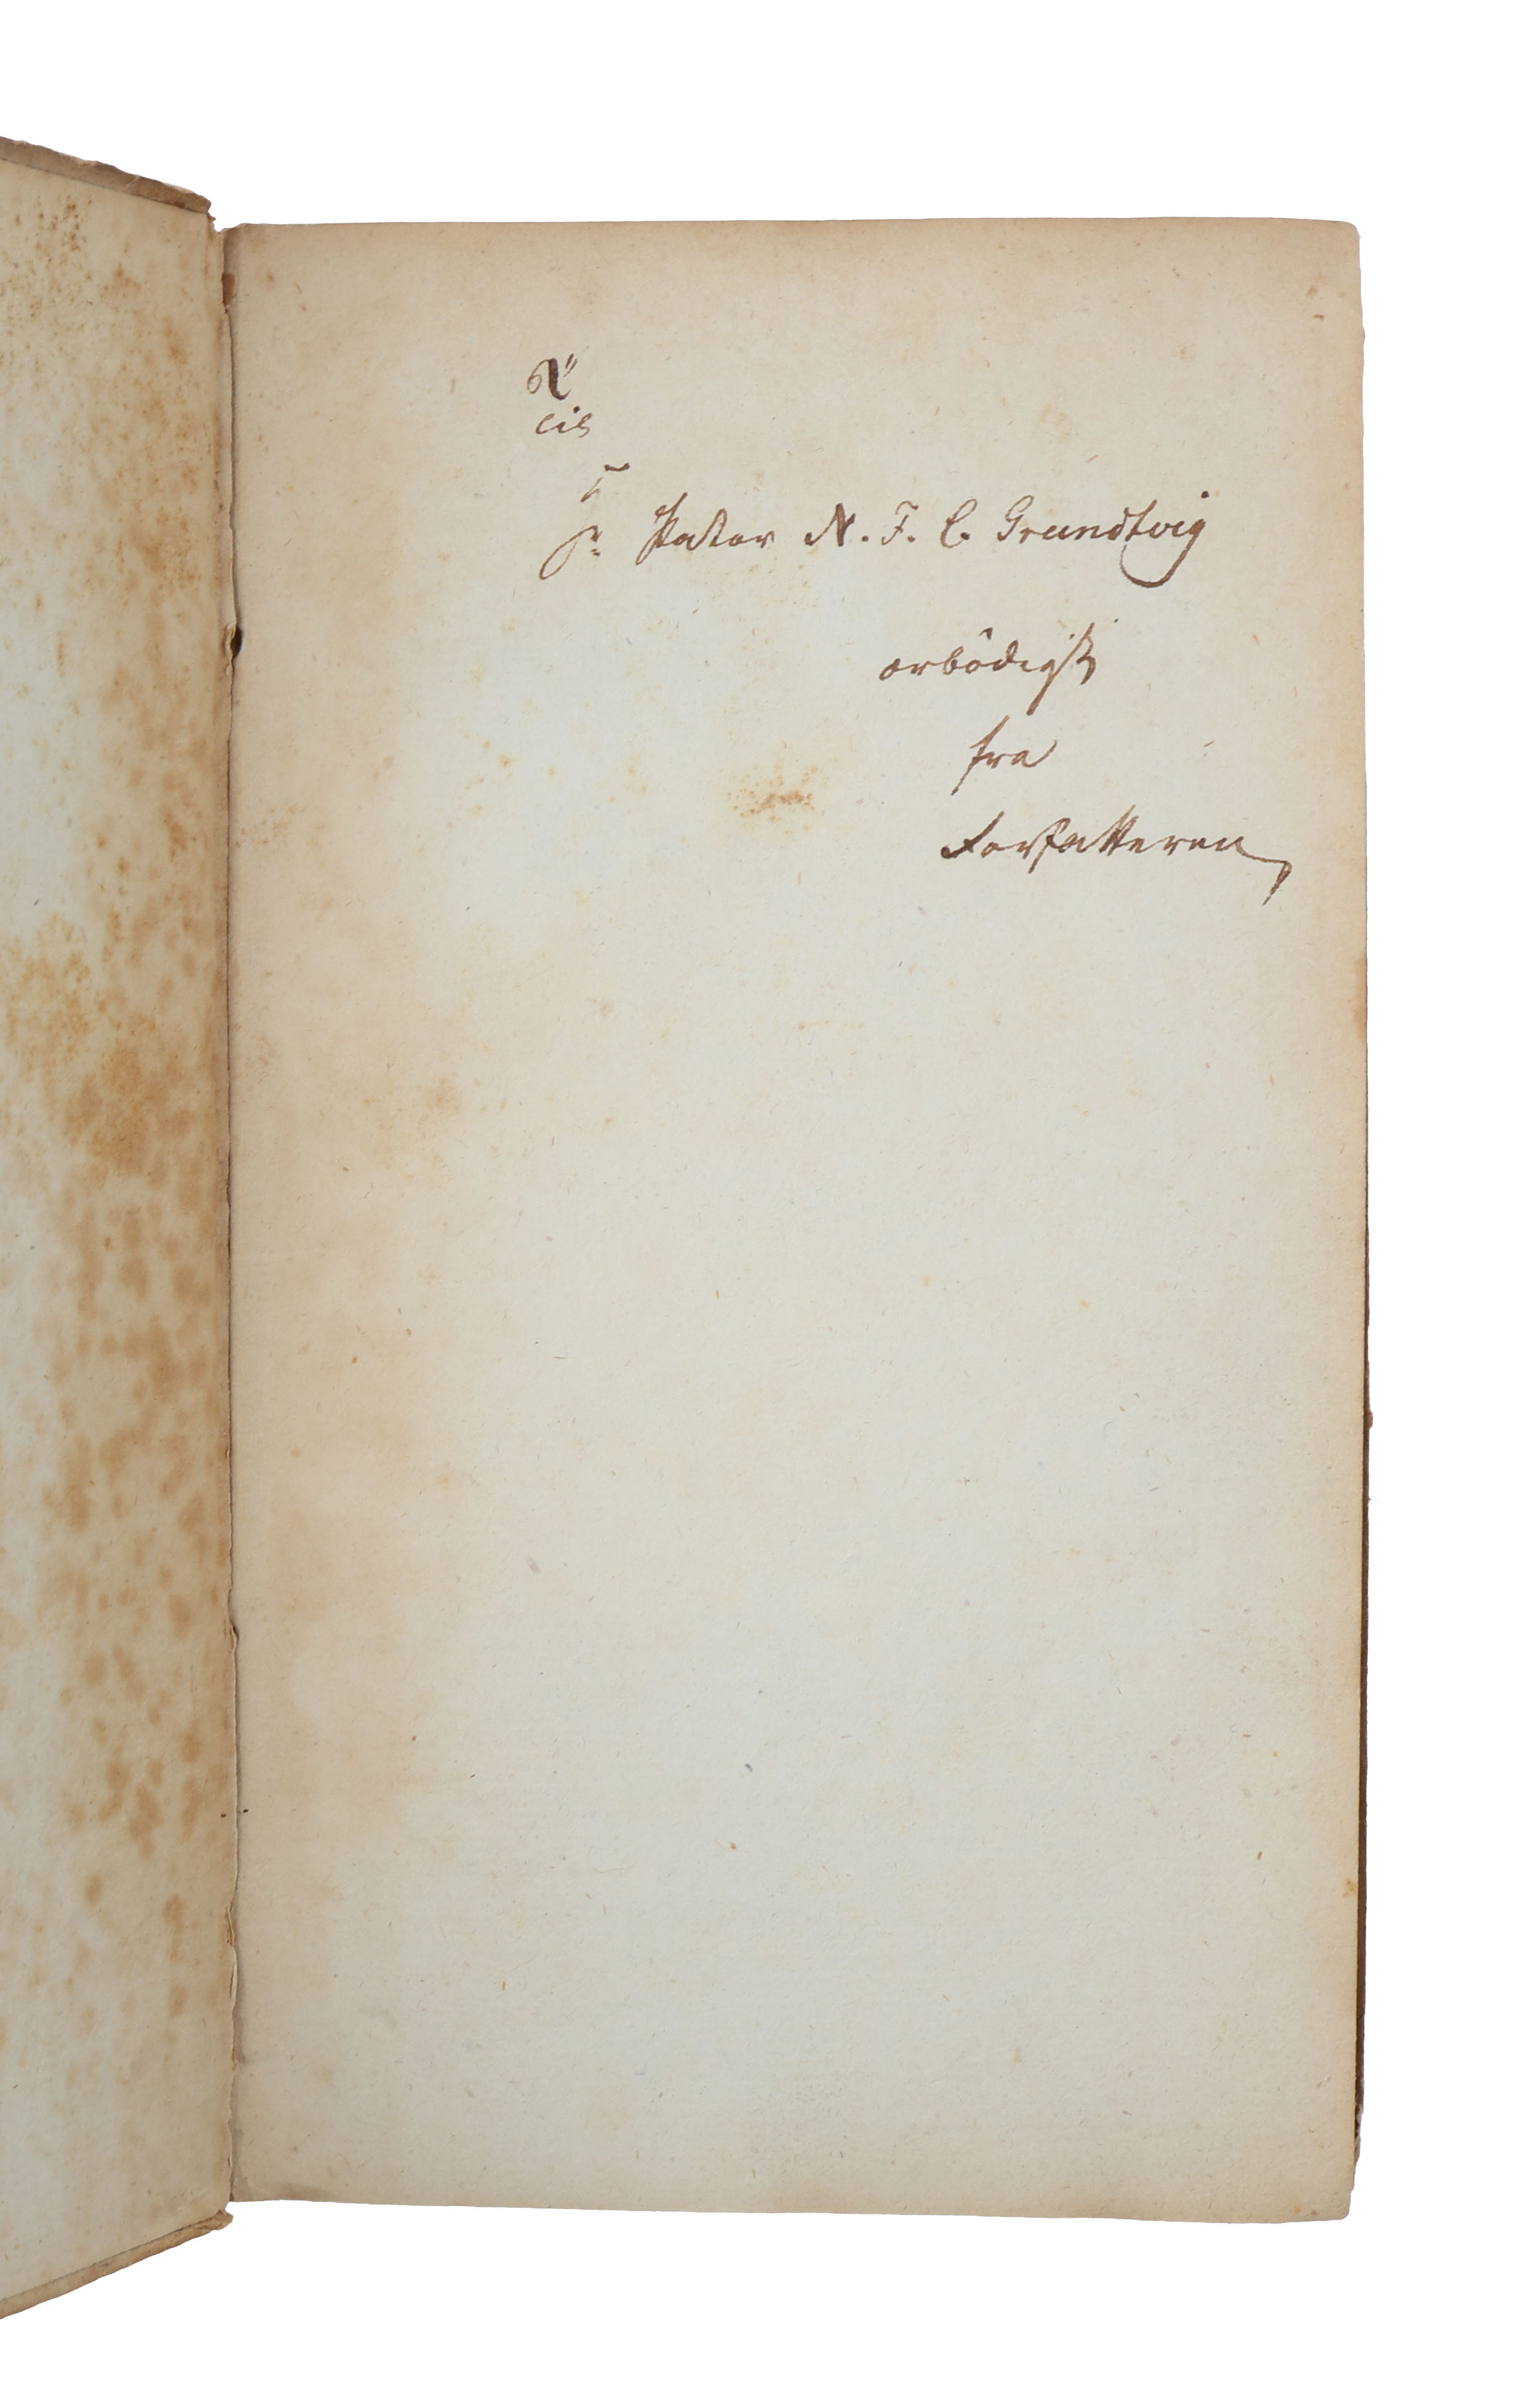 Til
Hr Pastor N. F. S. Grundtvig
ærbødigst
fra
Forfatteren